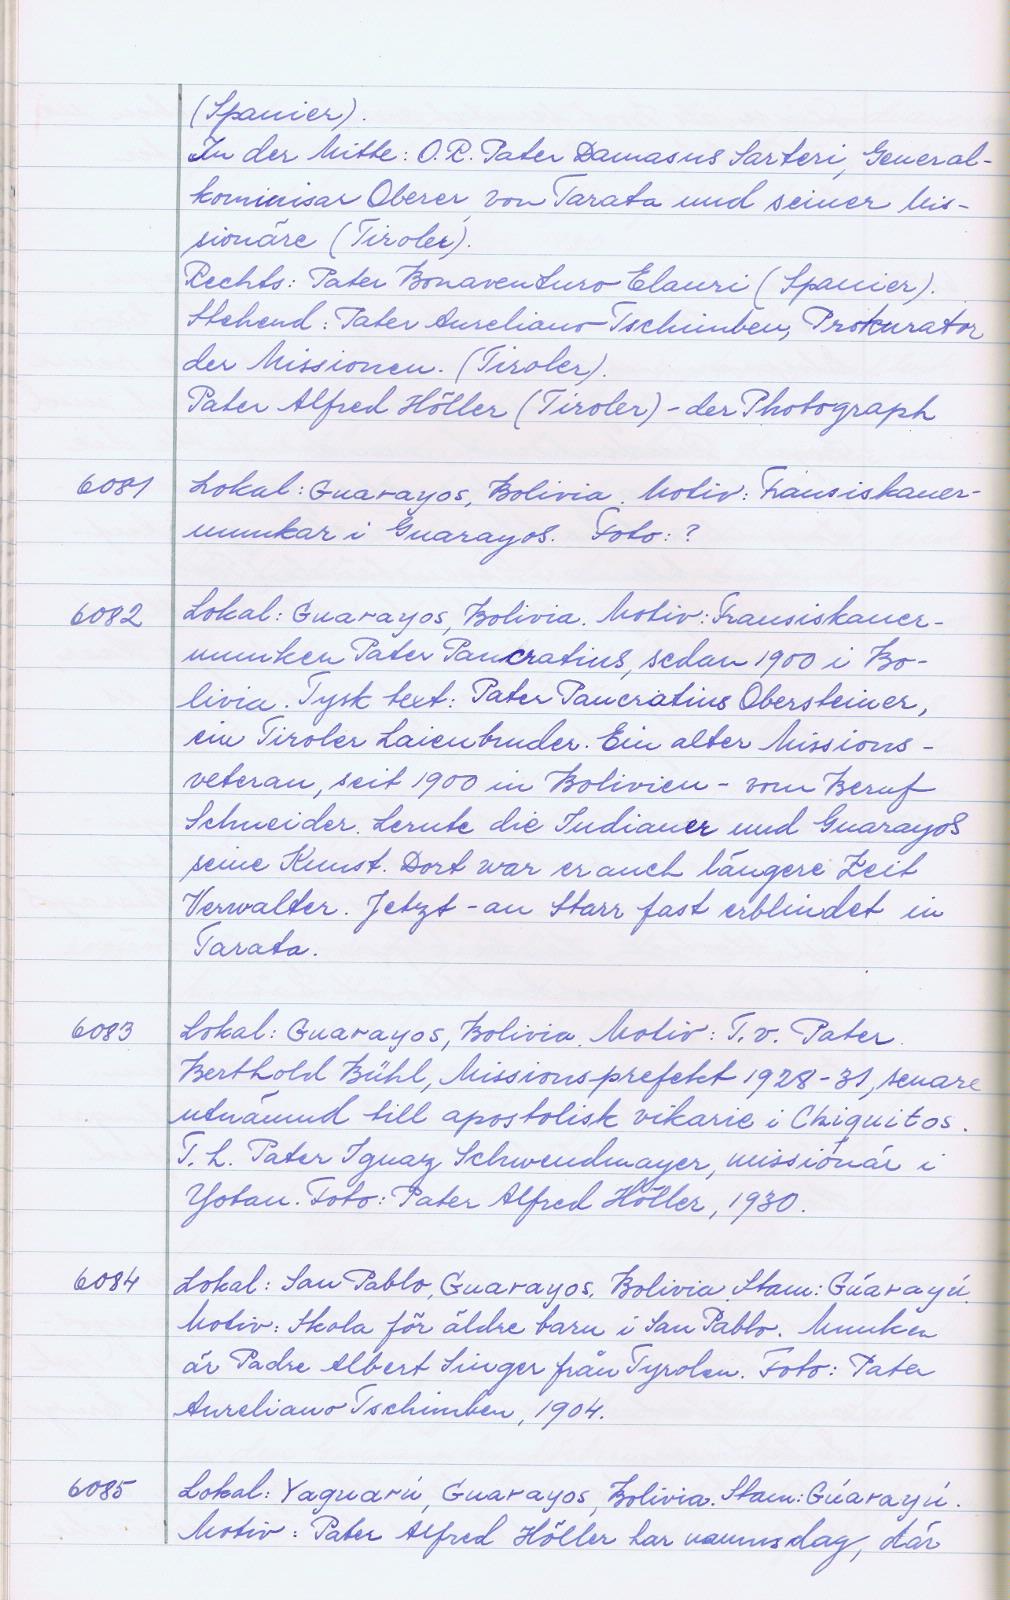 (Spanier).
In der Mitte: O.R. Pater Damasus Sarteri, General-
kommisar Oberer von Tarata und seiner Mis-
sionäre (Tiroler).
Rechts: Pater Bonaventuro Elauri (Spanier).
Stehend: Pater Aureliano Tschimben, Prokurator
der Missionen. (Tiroler).
Pater Alfred Höller (Tiroler) - der Photograph
6081 Lokal: Guarayos, Bolivia. Motiv: Fransiskaner-
munkar i Guarayos. Foto: ?
6082 Lokal: Guarayos, Bolivia. Motiv: Fransiskaner-
munken Pater Pancratius, sedan 1900 i Bo-
livia. Tysk text: Pater Pancratius Obersteiner,
ein Tiroler Laienbruder. Ein alter Missions-
veteran, seit 1900 in Bolivien - vom Beruf
Schneider. Lernte die Indianer und Guarayos
seine Kunst. Dort war er auch längere Zeit
Verwalter. Jetzt - an Starr fast erblindet in
Tarata.
6083 Lokal: Guarayos, Bolivia. Motiv: T.v. Pater
Berthold Bühl, Missionsprefekt 1928-31, senare
utnämnd till apostolisk vikarie i Chiquitos.
T.h. Pater Ignaz Schwendmayer, missionär i
Yotau. Foto: Pater Alfred Höller, 1930.
6084 Lokal: San Pablo, Guarayos, Bolivia. Stam: Gúarayú.
Motiv: Skola för äldre barn i San Pablo. Munken
är Padre Albert Singer från Tyrolen. Foto: Pater
Aureliano Tschimben, 1904.
6085 Lokal: Yaguarú, Guarayos, Bolivia. Stam: Gúarayú.
Motiv: Pater Alfred Höller har namnsdag, där